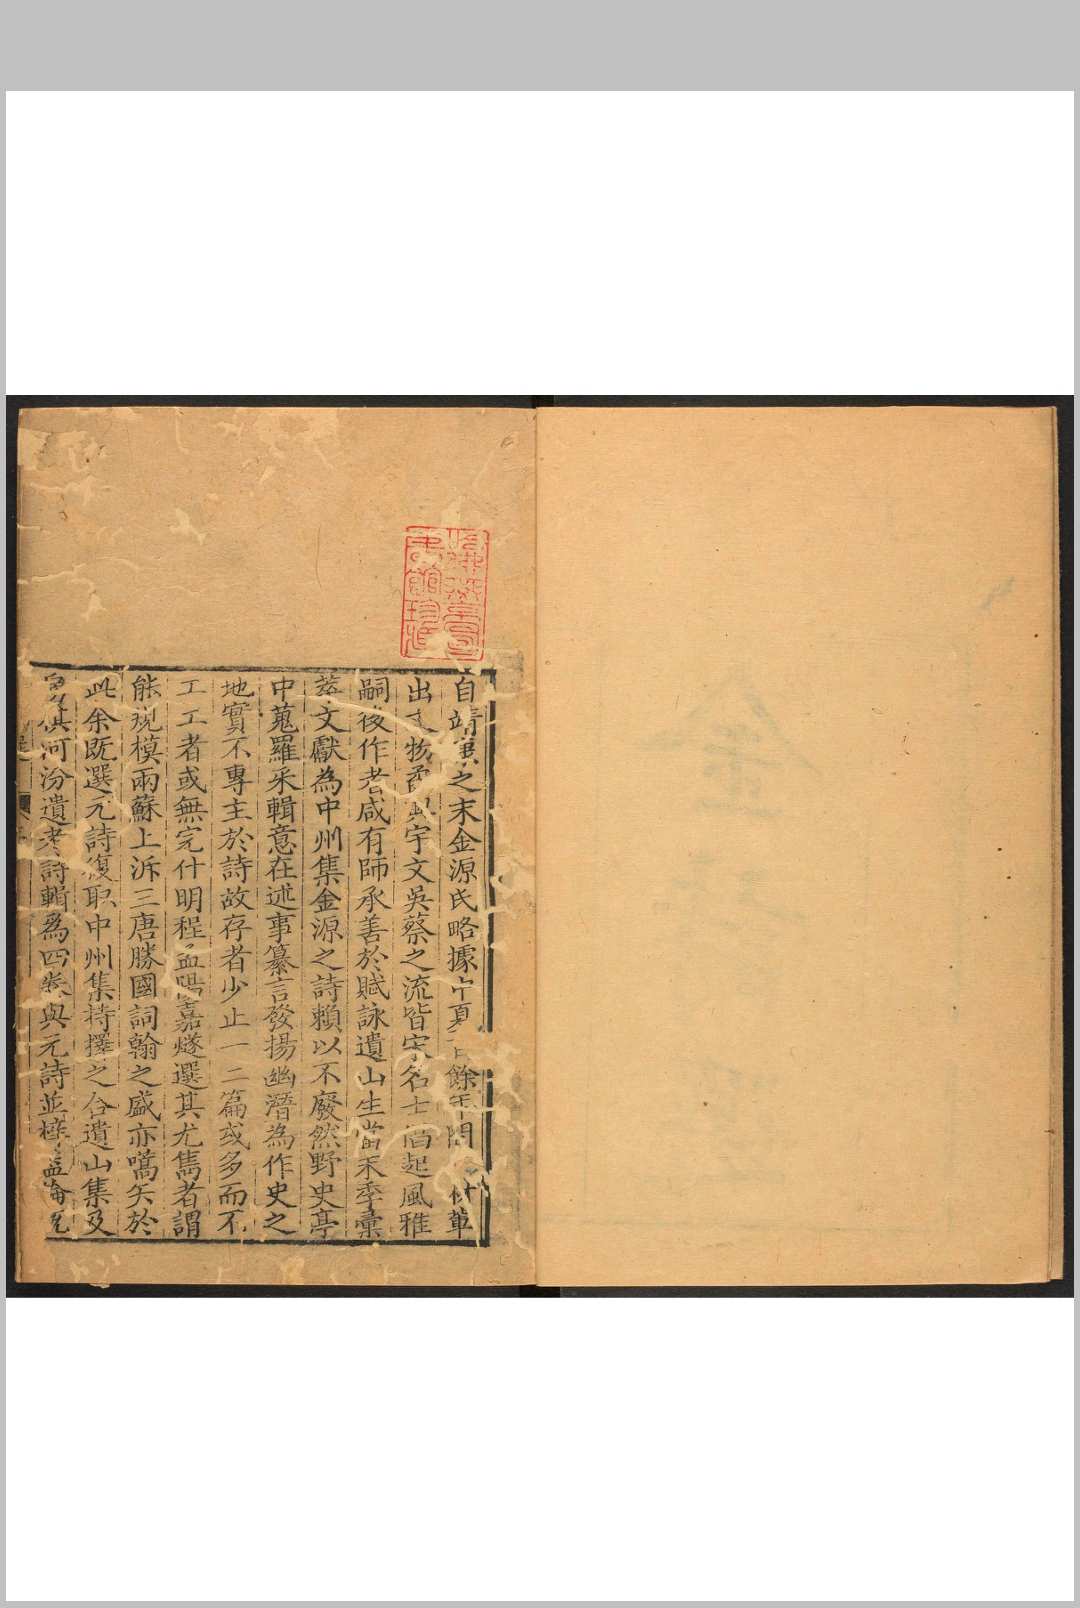 自靖康之末金源氏略據中夏餘年間付單
出文物柔與宇文吳蔡之流皆宋名士倡起風雅
嗣後作者咸有師承善於賦詠遺山生當末季彙
萃文獻為中州集金源之詩賴以不廢然野史亭
中蒐羅采輯意在述事纂言發揚幽潛為作史之
地實不專主於詩故存者少止一二篇或多而不
工工者或無完什明程孟陽嘉燧選其尤雋者謂
能規模兩蘇上泝三唐勝國詞翰之盛亦嚆矢於
此余既選元詩復取中州集持擇之合遺山集及
俱河汾遺老詩輯為四卷與元詩並梓